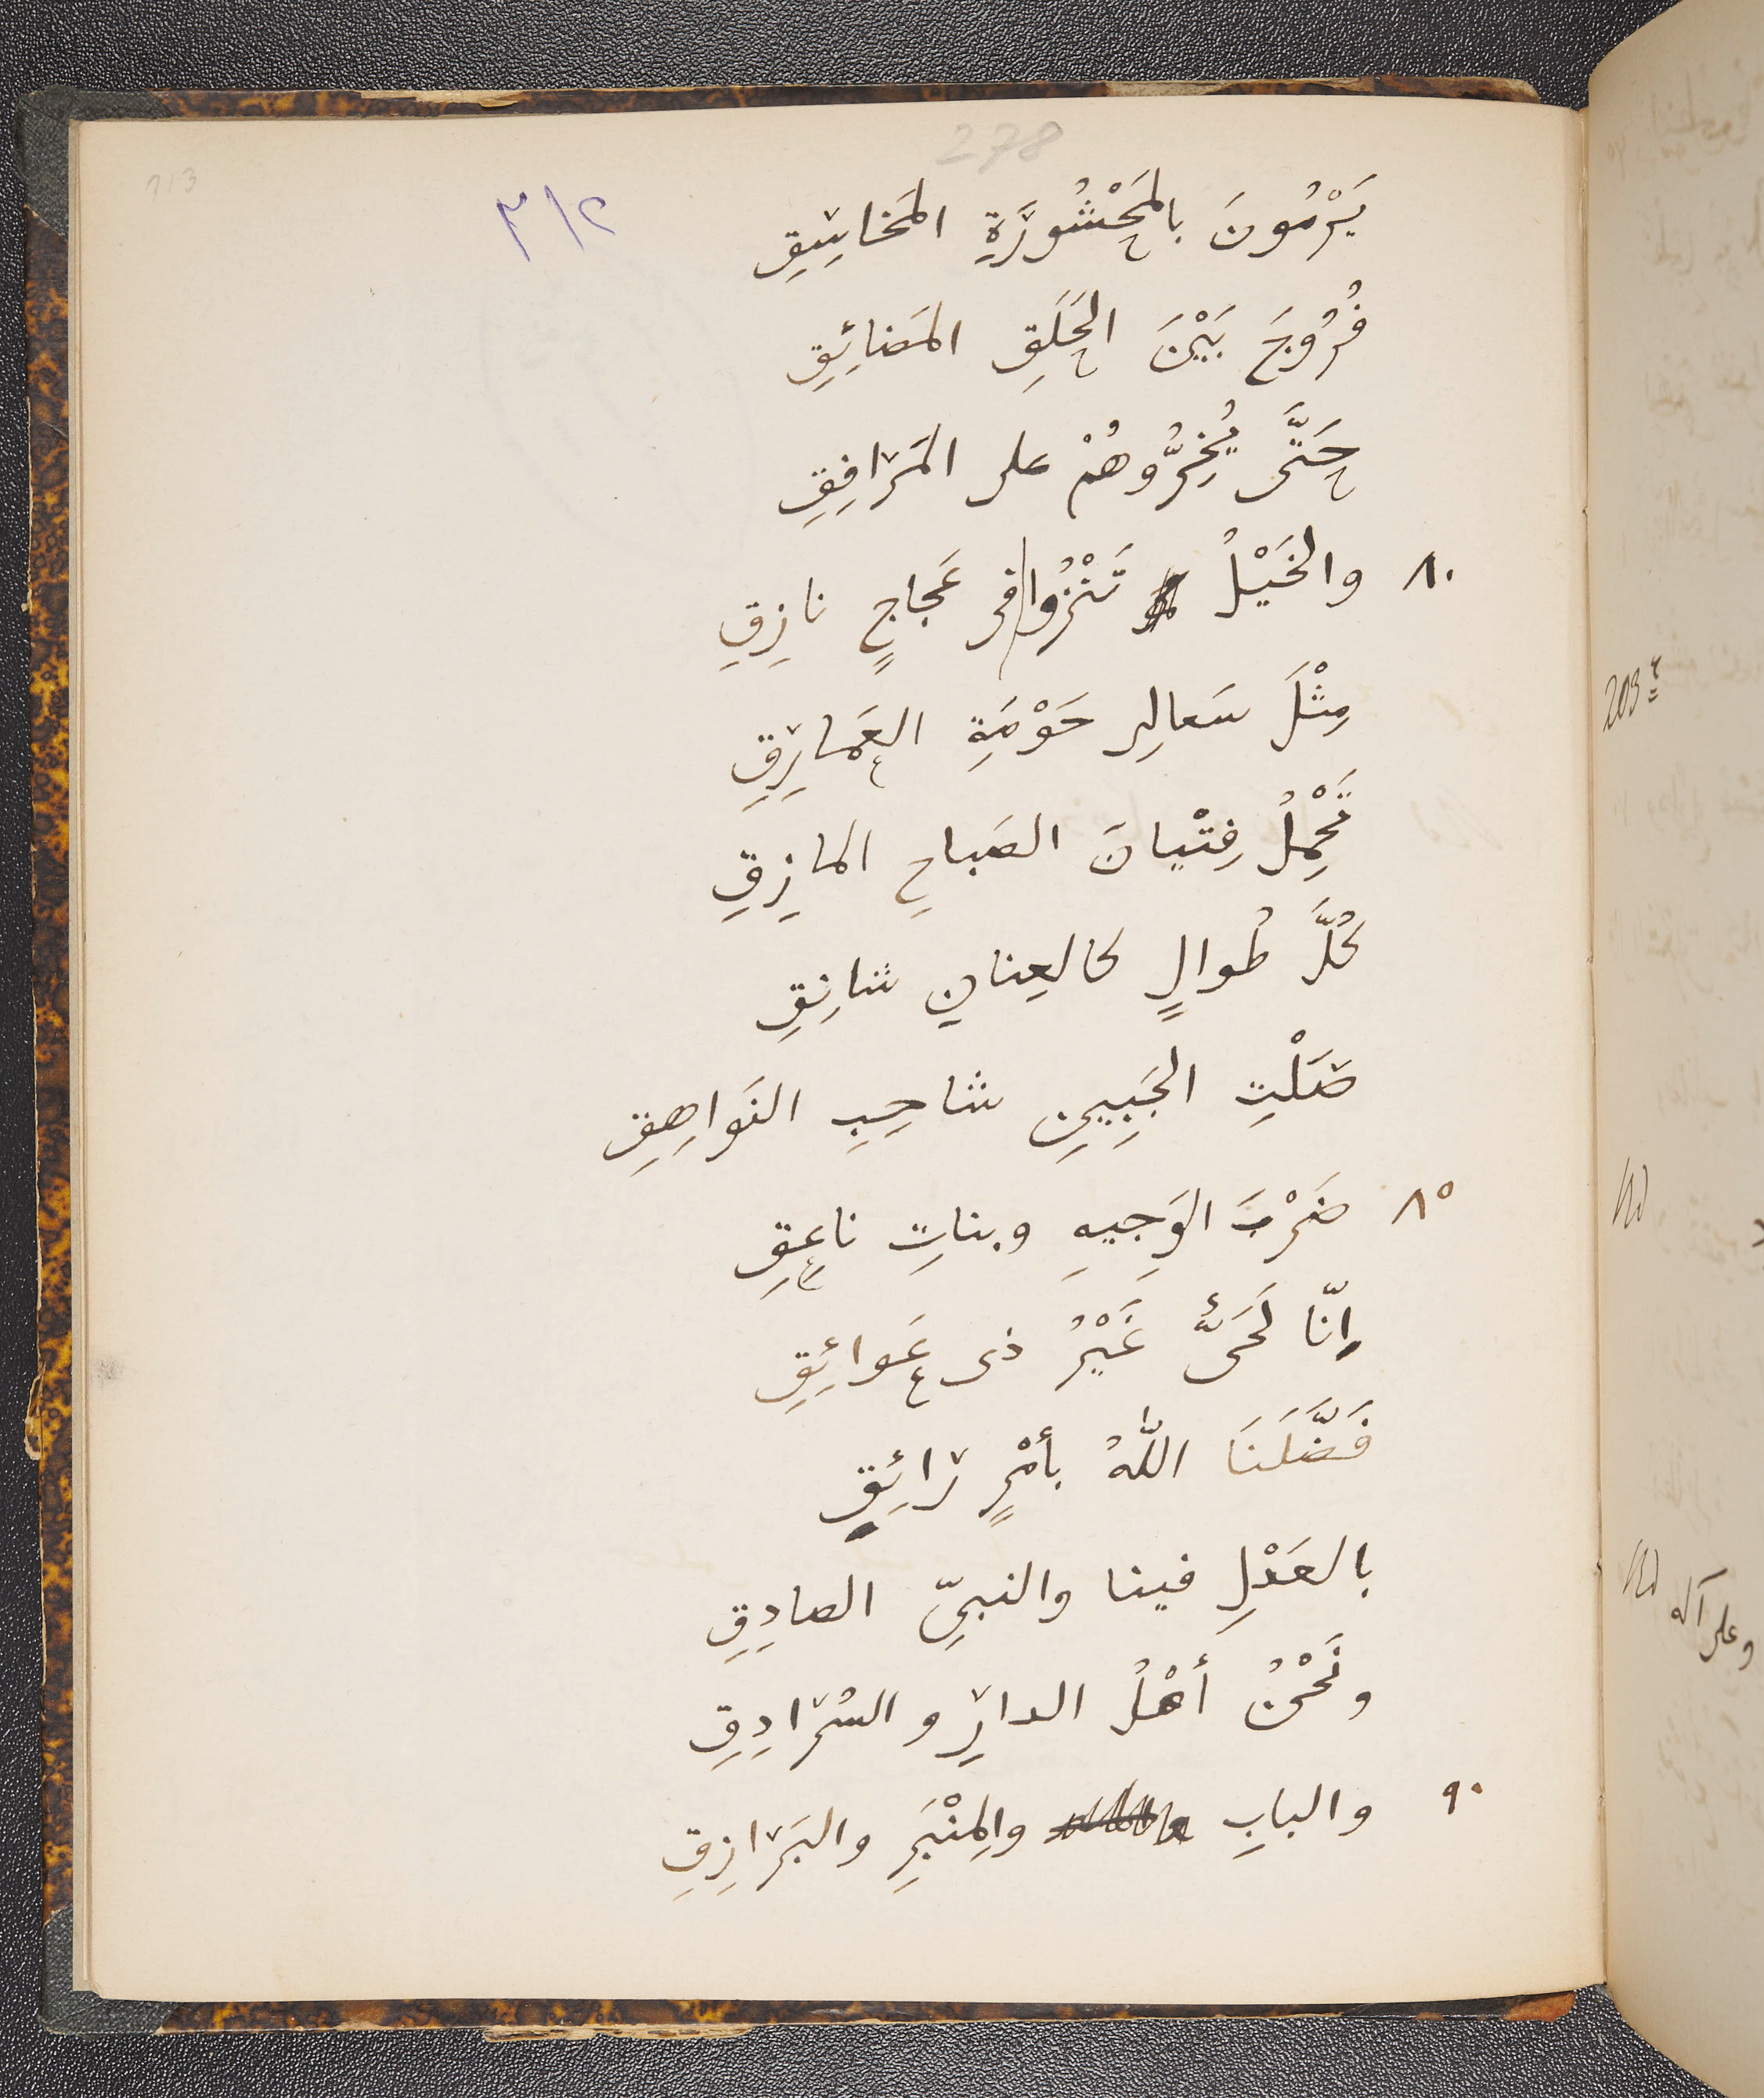 278
313
٣١٢
يَرْمُونَ بالمَحْشُورَةِ المَخاسِقِ
فُرُوجَ بَيْنَ الحَلَقِ المَضائِقِ
حَتَّى يُخِرُّوهُمْ على المَرافِقِ
٨٠ والخَيْلُ تَنْزُوا فى عَجاجٍ نازِقِ
مِثْلَ سَعالِى حَوْمَةِ العَمارِقِ
تَحْمِلُ فِتْيانَ الصَباحِ المازِقِ
كُلَّ طُوالٍ كالعِنانِ شانِقِ
صَلْتِ الجَبِيِنِ شاحِبِ النَواهِقِ
٨٥ ضَرْبَ الوَجِيهِ وبناتِ ناعِقِ
إنّا لَحَىٌّ غَيْرُ ذى عَوائِقِ
فَضَّلَنَا اللّٰهُ بأمْرٍ رائِقِ
بالعَدْلِ فينا والنبىِّ الصادِقِ
ونَحْنُ أهْلُ الدارِ والسُرادِقِ
٩٠ والبابِ والمِنْبَرِ والبَرازِقِ
203
وعلى آله